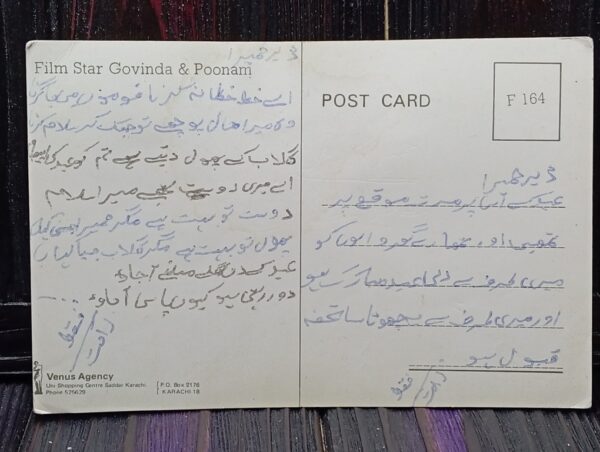 ڈیر حمیرا
Film Star Govinda & Poonam
اے خط خطا نہ
وہ میرا حال پوچھے تو جھک کر سلام کرنا
گلاب کے پھول دیتے ہے تم کو عید کا
اے میری دوست تجھے میرا سلام
دوست تو بہت ہے مگر حمیرا جیسی کہاں
پھول تو بہت ہے مگر گلاب جیسا کہاں
عید کے دن گلے ملنے آجاؤ
دور بیٹھی ہو کیوں پاس آجاؤ
فقط
Venus Agency
Uni-Shopping Centre Saddar Karachi.
Phone 525629
P.O. Box 2176
KARACHI 18
POST CARD
F 164
ڈیر حمیرا
عید کے اس پر مسرت موقع پر
تمھیں اور تمھارے گھر والوں کو
میری طرف سے دلی عید مبارک ہو
اور میری طرف سے چھوٹا سا تحفہ
قبول ہو
فقط